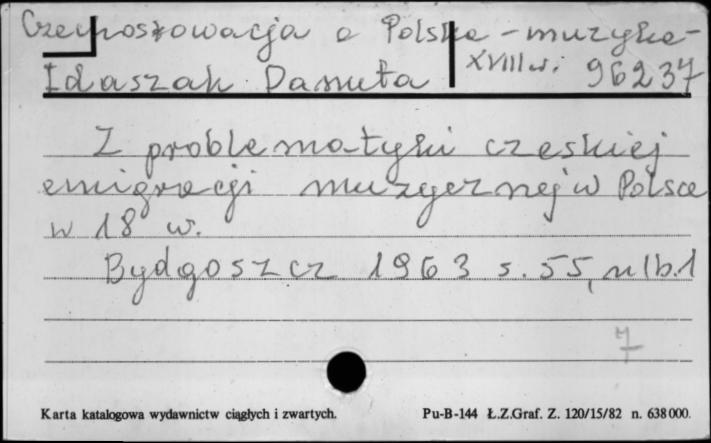 Czechosłowacja a Polska - muzyka -
XVIII w. 96237
Idaszak Danuta
Z problematyki czeskiej
emigracji muzycznej w Polsce
w 18 w.
Bydgoszcz 1963 s. 55, nlb. 1
7
Karta katalogowa wydawnictw ciągłych i zwartych. Pu-B-144 Ł.Z.Graf. Z. 120/15/82 n. 638000.